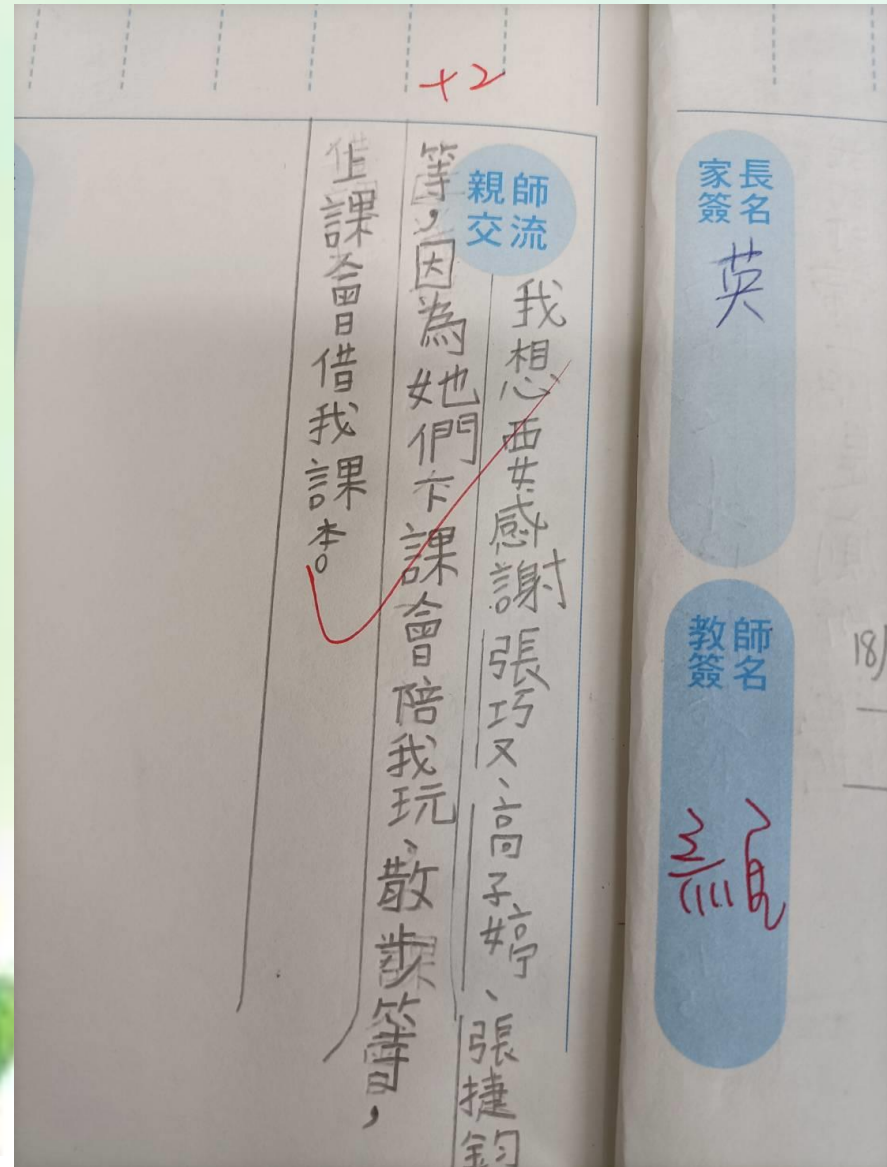 家長簽名
英
教師簽名
18/
+2
親師交流
我想要感謝張巧又、高子婷、張捷鈞
等，因為她們下課會陪我玩、散步等，
上課會借我課本。